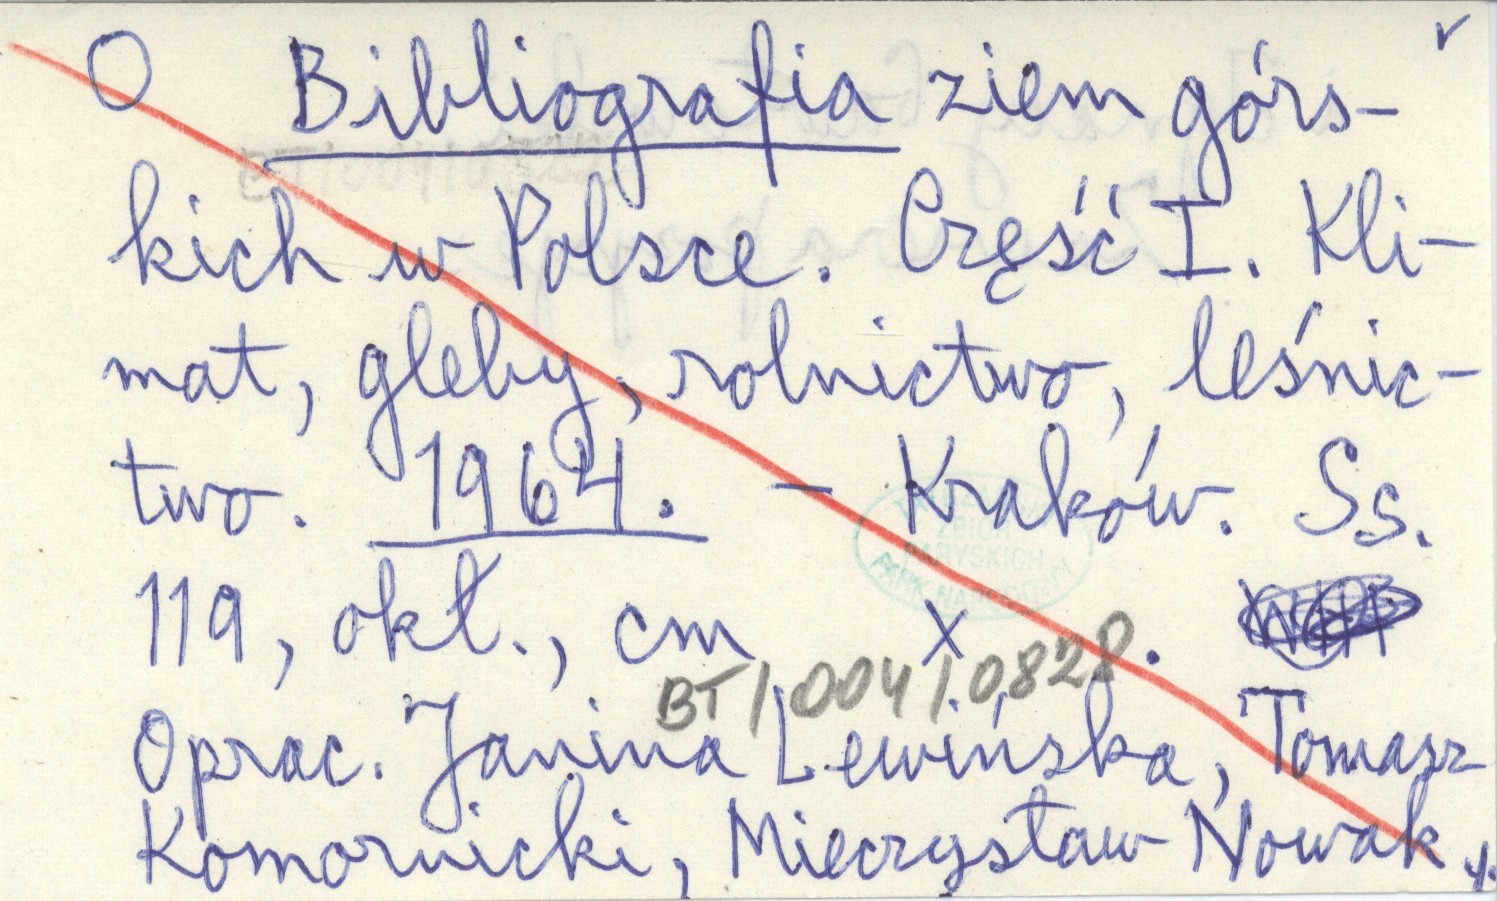 O Bibliografia ziem górs-
kich w Polsce. Część I. Kli-
mat, gleby, rolnictwo, leśnic-
two. 1964. - Kraków. Ss.
119, okł., cm x .
BT/004/0828
Oprac. Janina Lewińska, Tomasz
Komornicki, Mieczysław Nowak,
ZBIORY
PARYSKICH
PARK NARODOWY